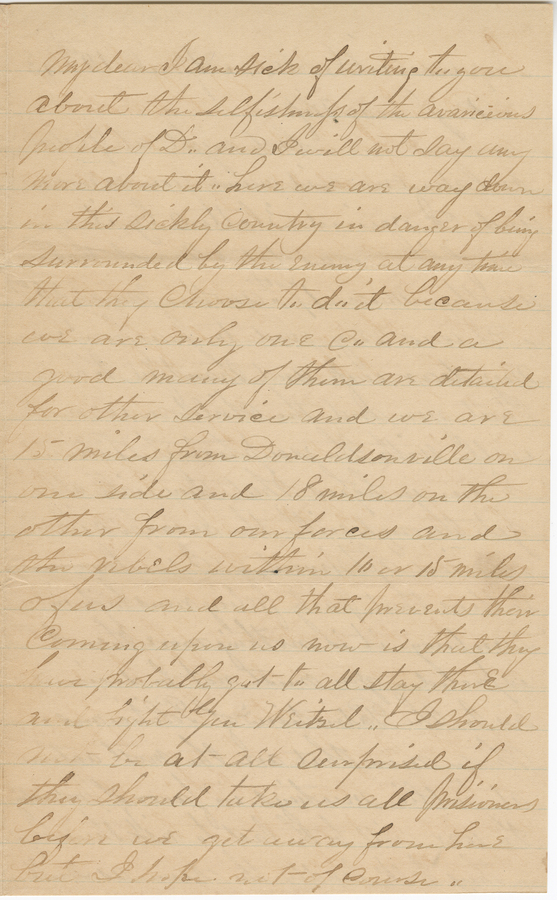 My dear I am sick of writing to you
about the selfishness of the avaricious
people of D.. and I will not say any
more about it .. here we are way down
in this sickly Country in danger of being
surrounded by the enemy at any time
that they Choose to do it because
we are only one Co and a
good many of them are detailed
for other service and we are
15 miles from Donaldsonville on
one side and 18 miles on the
other from our forces and
the rebels within 10 or 15 miles
of us and all that prevents their
Coming upon us now is that they
have probably got to all stay there
and fight Gen Weitzel .. I should
not be at all surprised if
they should take us all prisioners
before we get away from here
but I hope not of course ..